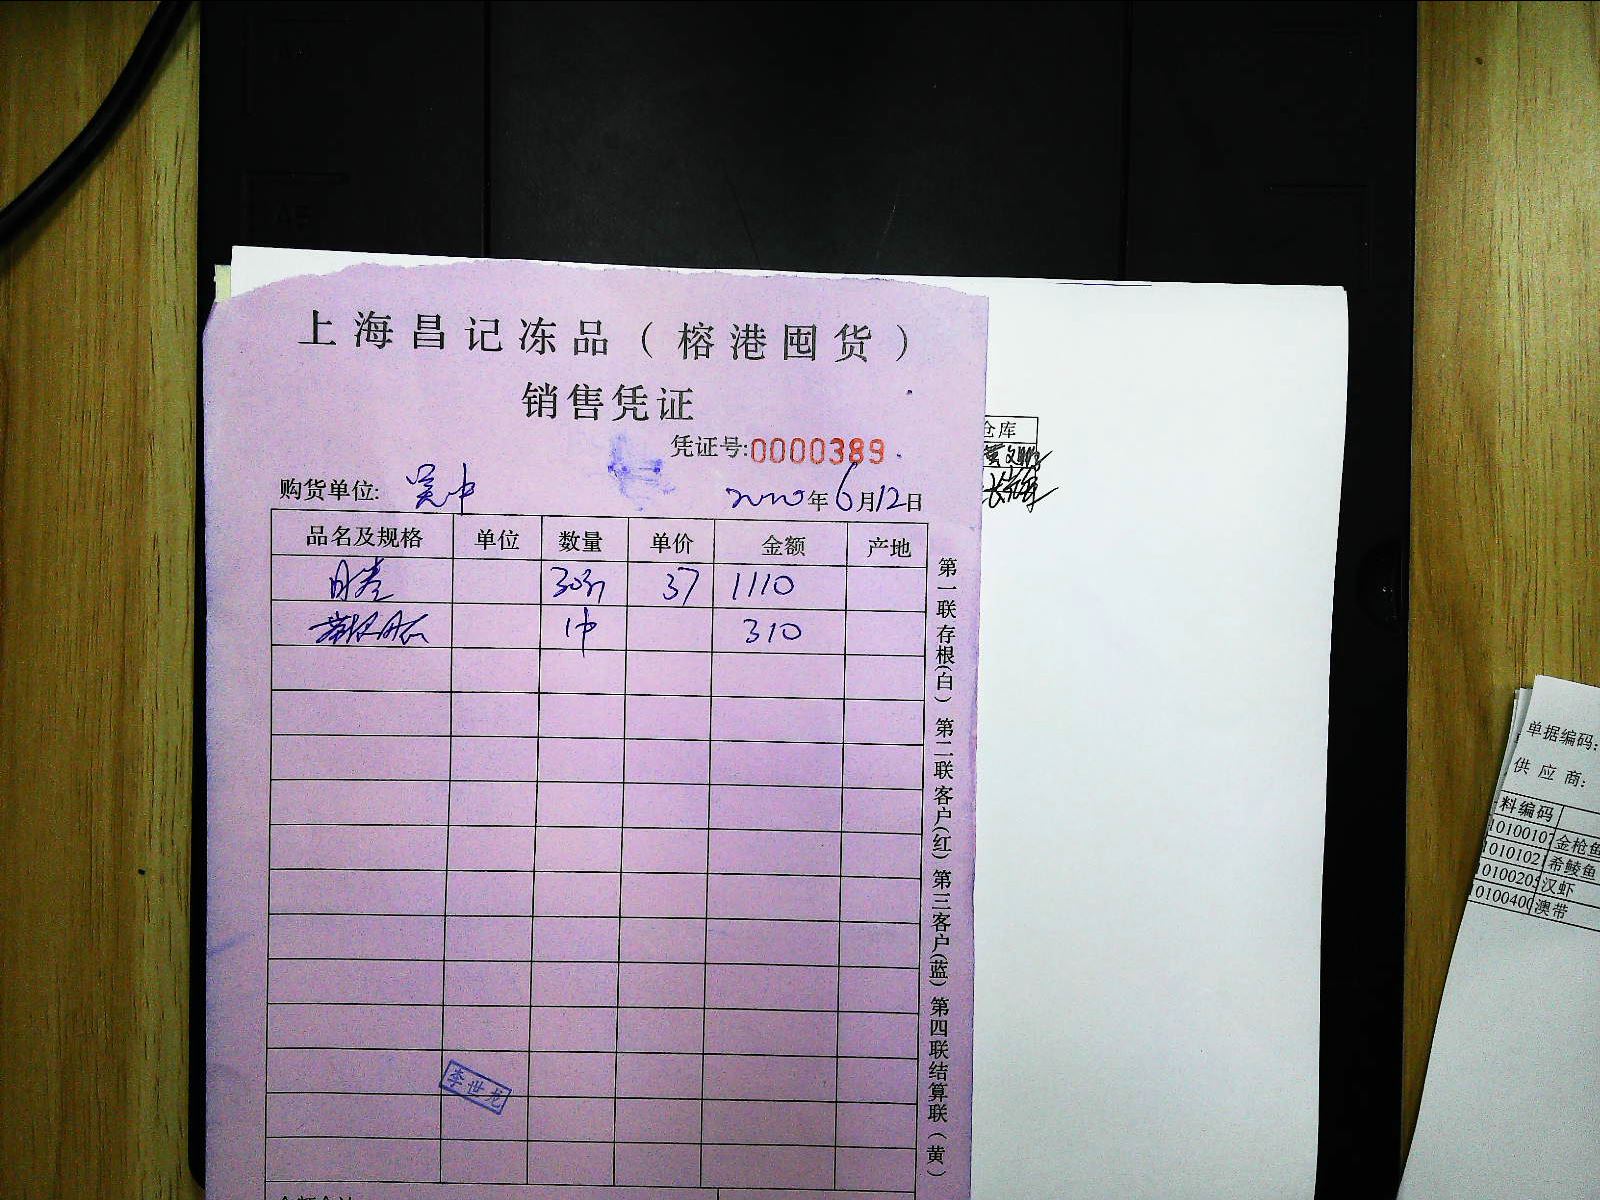 上海昌记冻品（榕港囤货）
销售凭证
凭证号:0000389
购货单位: 吴中 2020年6月12日
品名及规格 单位 数量 单价 金额 产地
30 37 1110
1中 310
李世龙
第一联存根(白) 第二联客户(红) 第三客户(蓝) 第四联结算联(黄)
仓库
单据编码:
供应商:
料编码
金枪鱼
希鲮鱼
汉虾
澳带
A5